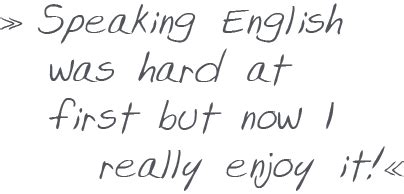 » Speaking English
was hard at
first but now I
really enjoy it!«